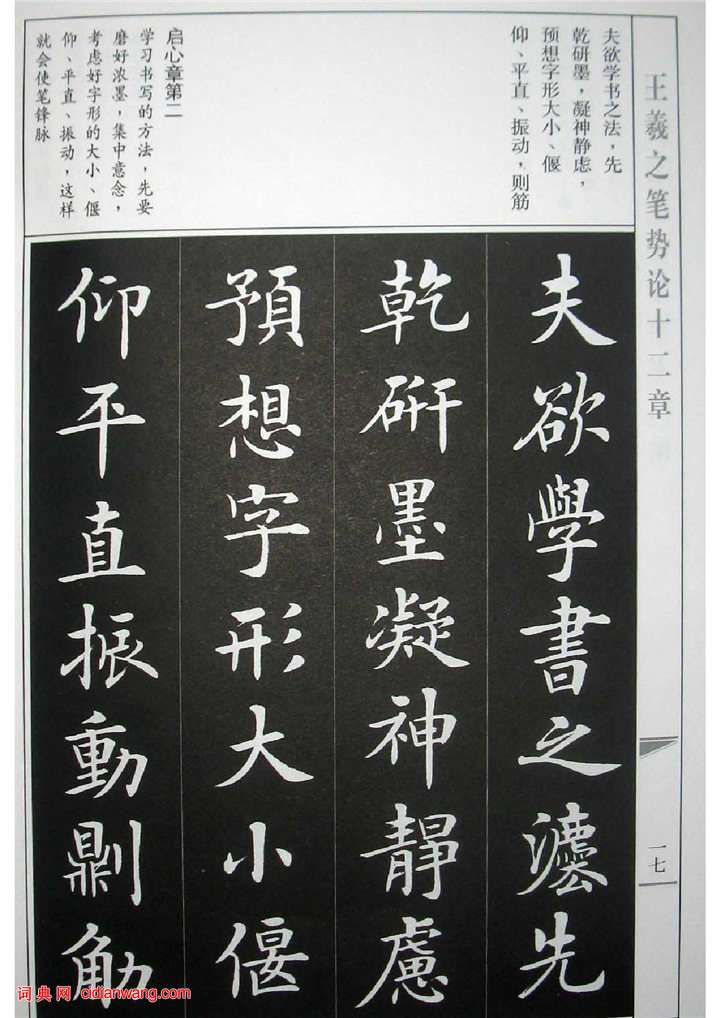 王羲之笔势论十二章
一七
夫欲学书之法，先
乾研墨，凝神静虑，
预想字形大小、偃
仰、平直、振动，则筋
启心章第二
学习书写的方法，先要
磨好浓墨，集中意念，
考虑好字形的大小、偃
仰、平直、振动，这样
就会使笔锋脉
夫欲學書之灋先
乾硏墨凝神靜慮
預想字形大小偃
仰平直振動鼎刂角力
词典网 cidianwang.com